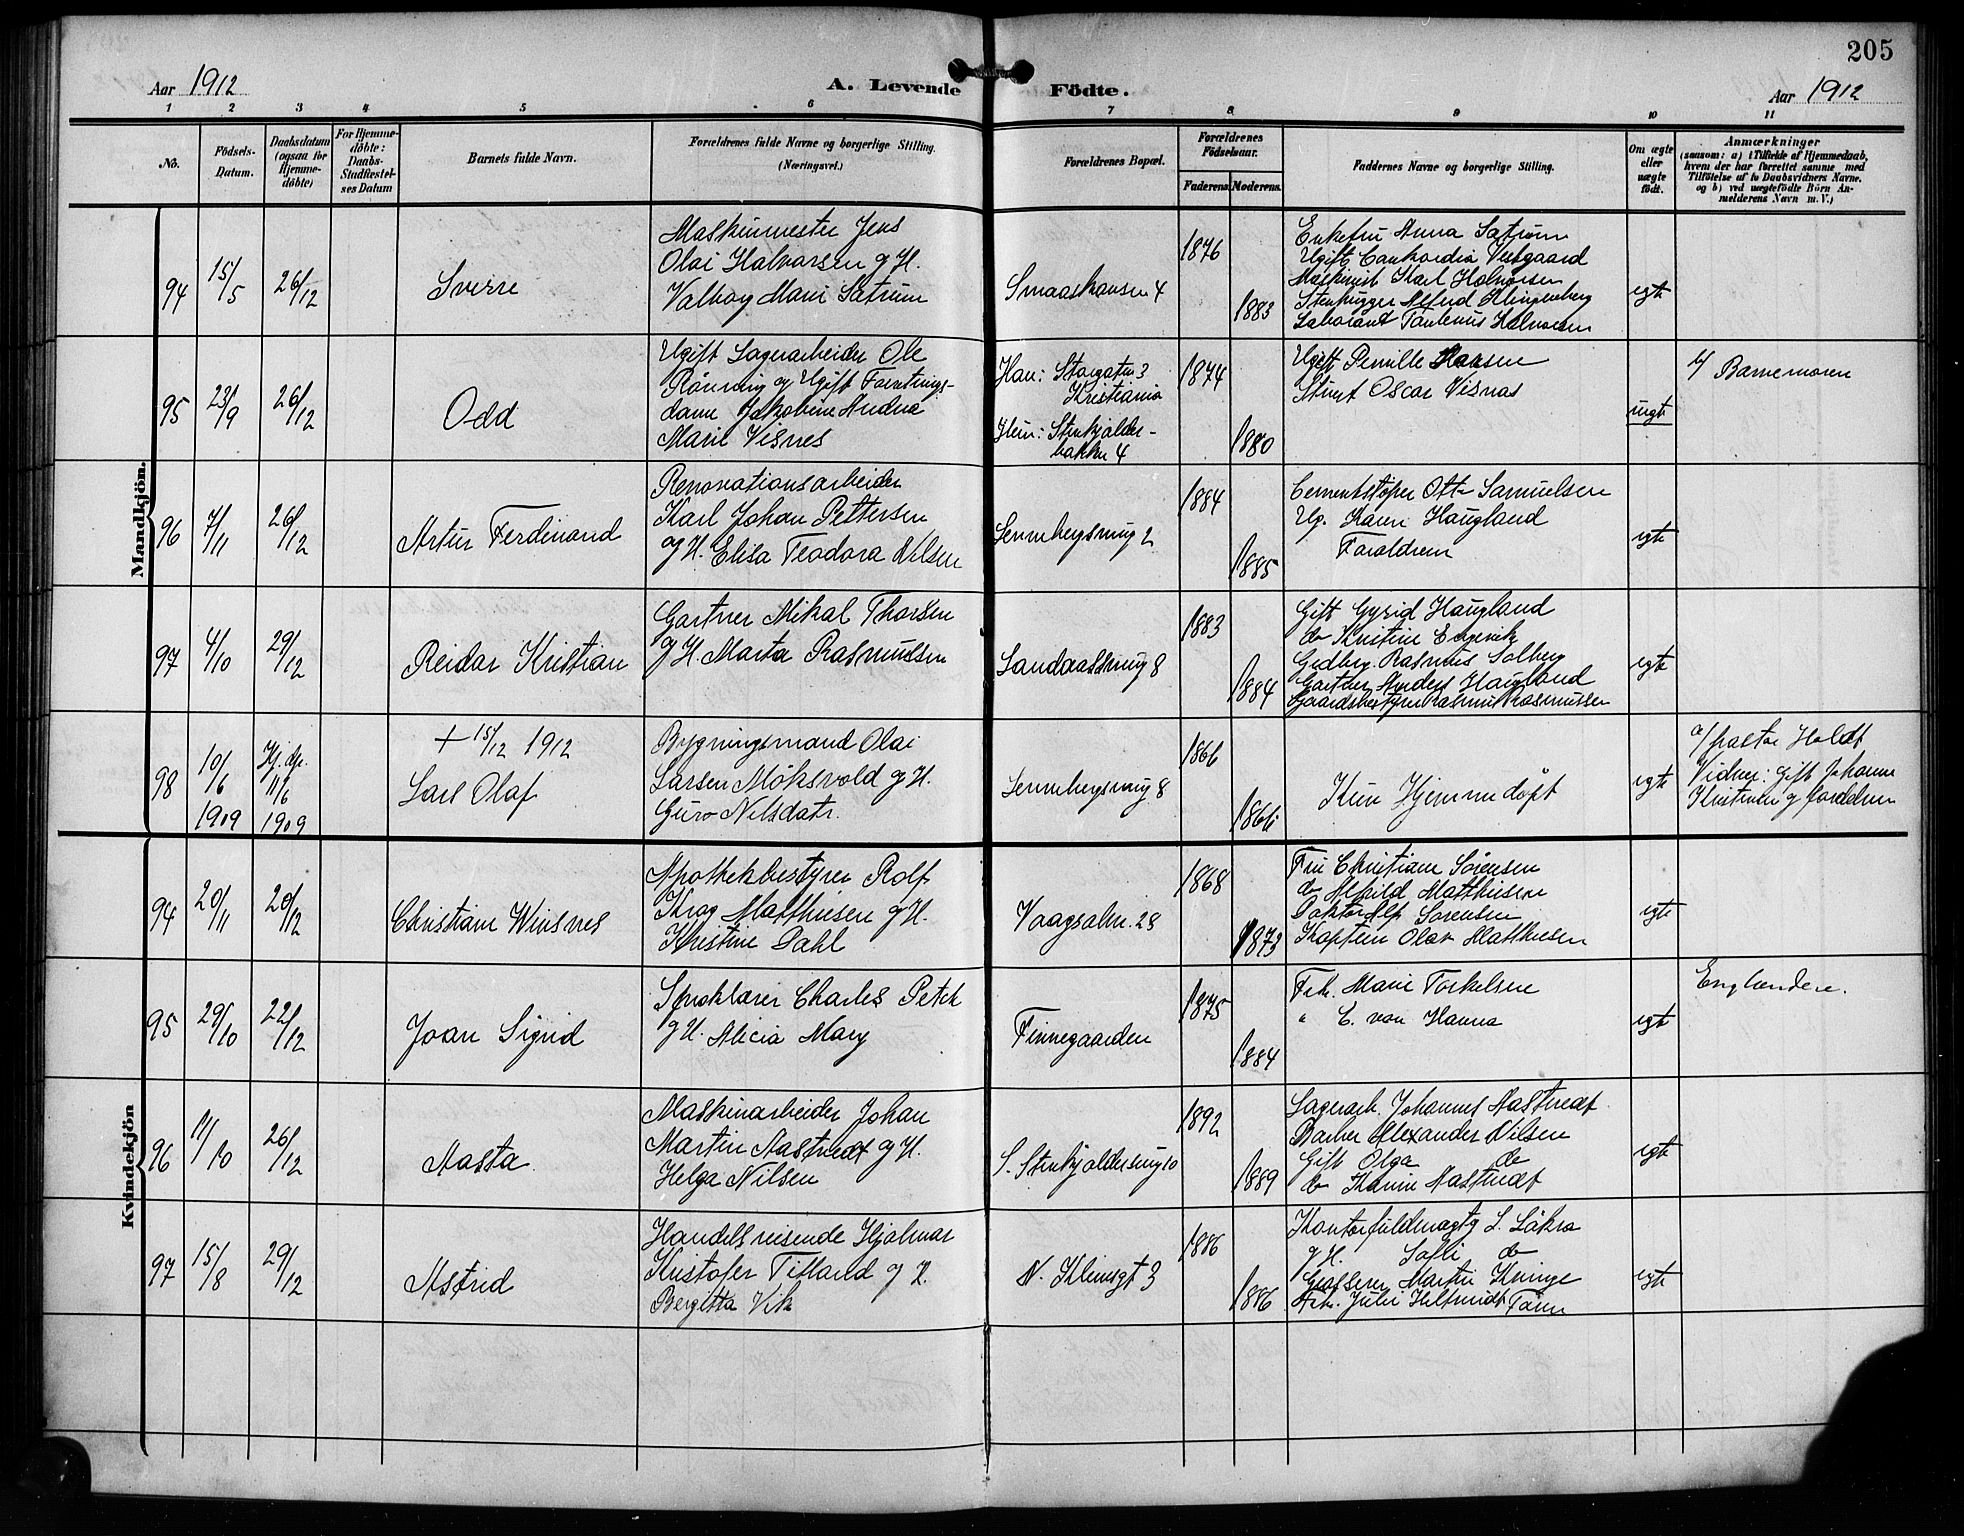 205
Aar 1912
A. Levende Födte.
Aar 1912
1 2 3 4 5 6 7 8 9 10 11
No.
Födsels-
Datum.
Daabsdatum
(ogsaa for
Hjemme-
döbte)
For Hjemme-
döbte:
Daabs-
Stadfæstel-
ses Datum
Barnets fulde Navn.
Forældrenes fulde Navne og borgerlige Stilling.
(Næringsvei.)
Forældrenes Bopæl.
Forældrenes
Födselsaar.
Faderens.
Moderens.
Faddernes Navne og borgerlige Stilling.
Om ægte
eller
uægte
födt.
Anmærkninger
(saasom: a) i Tilfælde af Hjemmedaab,
hvem der har forrettet samme med
Tilföielse af to Daabsvidners Navne.
og b) ved uægtefödte Börn An-
melderens Navn m. V.)
Mandkjön.
94
15/5
26/12
Sverre
Maskinmester Jens
Olai Halvorsen og H.
Valborg Marie Sætrum
Smaaskansen 4
1876
1883
Enkefru Anna Sætrum
Ugift Conkordia Vestgaard
Maskinist Karl Halvorsen
Stenhugger Alfred Klingenberg
Laborant Halvorsen
egte
95
23/9
26/12
Odd
Ugift Lagerarbeider Ole
Rönning og Ugift Forretnings-
dame Jakobine Andrea
Marie Visnes
Han: Storgaten 3
Kristiania
Hun: Stenkjelder-
bakken 4
1874
1880
Ugift Pernille Hansen
Stuert Oscar Visnæs
uegte
b/ Barnemoren
96
7/11
26/12
Artur Ferdinand
Renovationsarbeider
Karl Johan Pettersen
og H. Elisa Teodora Nilsen
2
1884
1885
Cementstöper Otto Samuelsen
Ug. Karen Haugland
Forældrene
egte
97
4/10
29/12
Reidar Kristian
Gartner Mikal Thorsen
og H. Marta Rasmussen
Landaassveug 8
1883
1884
Gift Gyrid Haugland
do Kristine
Gedbrg. Rasmus Solberg
Gartner Anders Haugland
Gaardsbestyrer Rasmus Rasmussen
egte
98
10/6
1909
Hj. dp.
11/6
1909
+ 15/12 1912
Carl Olaf
Bygningsmand Olai
Larsen Möksvold og H.
Guro Nilsdatr.
8
1866
1866
Kun Hjemmedöpt
egte
a/ pastor Holdt
Vidner: Gift Johanne
Kristensen og forældrene
Kvindekjön
94
20/11
20/12
Christiane Winsnes
Apothekbestyrer Rolf
Krag Matthiesen og H.
Kristine Dahl
Vaagsalm. 28
1868
1873
Fru Christiane Sörensen
do Alfhild Matthiesen
Doktor Alf Sörensen
Kaptein Olav Matthiesen
egte
95
29/10
22/12
Joan Sigrid
Sproklærer Charles Petch
og H. Alicia Mary
Finnegaarden
1875
1884
Frk. Marie Torkelsen
" C. von Hanna
egte
Englændere.
96
11/10
26/12
Aasta
Maskinarbeider Johan
Martin Aastvedt og H.
Helga Nilsen
S. Stenkjeldersmug 10
1892
1889
Lagerarb. Johannes Aastvedt
Barber Alexander Nilsen
Gift Olga do
do Hanne Aastvedt
egte
97
15/8
29/12
Astrid
Handelsreisende Hjalmar
Kristofer Titland og H.
Bergitta Vik
N. Klemsgt 3
1886
1886
Kontorfuldmægtg L. Läkra
og H. Sofie do
Grosserer Martin Kninge
Frk. Julie
egte